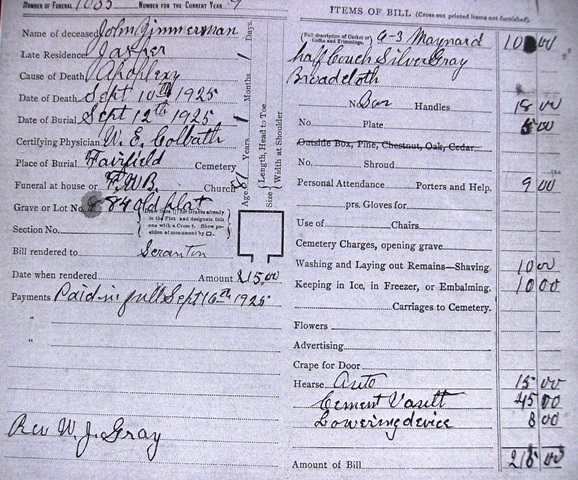 NUMBER OF FUNERAL 1035 NUMBER FOR THE CURRENT YEAR
Name of deceased John Zimmerman
Late Residence Jasper
Cause of Death Apoplexy
Date of Death Sept 10th 1925
Date of Burial Sept 12th 1925
Certifying Physician W. E. Colbath
Place of Burial Fairfield Cemetery
Funeral at house or F.W.B. Church
Grave or Lot No. 84 old plat
Section No.
(Draw lines ||| for Graves already in the Plot and designate this one with a Cross †. Show position of monument by □.
Bill rendered to Scranton
Date when rendered Amount 215.00
Payments Paid in full Sept 16th 1925
"
"
Rev W. J. Gray
Age 81 Years, 1 Months, 1 Days.
Size { Length, Head to Toe
Width at Shoulder
ITEMS OF BILL (Cross out printed items not furnished.)
(Full description of Casket or Coffin and Trimmings.) G-3 Maynard 00
half Couch Silver Gray
Broadcloth
No. Bar Handles 18 00
No. Plate 00
Outside Box, Pine, Chestnut, Oak, Cedar
No. Shroud
Personal Attendance Porters and Help. 9 00
prs. Gloves for
Use of Chairs
Cemetery Charges, opening grave
Washing and Laying out Remains—Shaving. 10 00
Keeping in Ice, in Freezer, or Embalming. 10 00
Carriages to Cemetery.
Flowers
Advertising
Crape for Door
Hearse Auto 15 00
Cement Vault 45 00
Lowering device 8 00
Amount of Bill 215 00